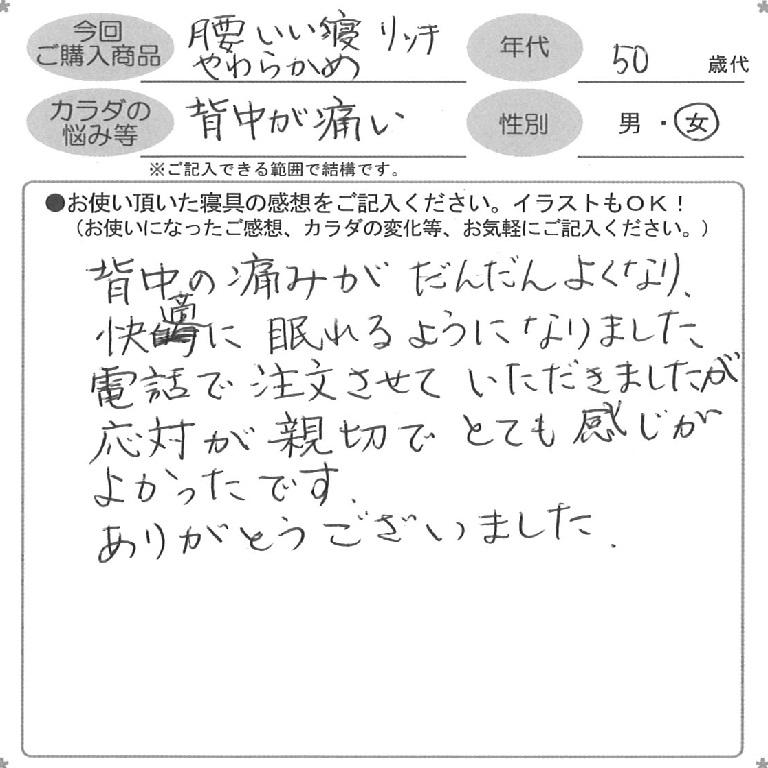 今回
ご購入商品
腰いい寝 リッチ
やわらかめ
年代
50 歳代
カラダの
悩み等
背中が痛い
性別
男・女
※ご記入できる範囲で結構です。
●お使い頂いた寝具の感想をご記入ください。イラストもOK！
（お使いになったご感想、カラダの変化等、お気軽にご記入ください。）
背中の痛みが だんだんよくなり、
快適に 眠れるようになりました。
電話で 注文させて いただきましたが
応対が 親切で とても 感じが
よかったです.
ありがとうございました.